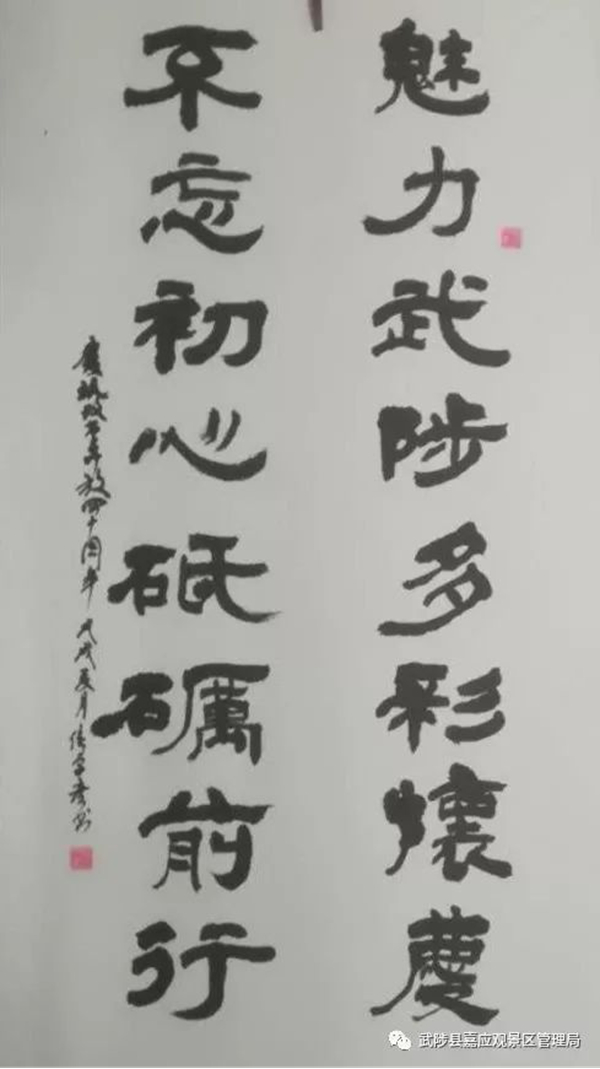 魅力武陟多彩懷慶
不忘初心砥礪前行
慶祝改革開放四十周年 戊戌
武陟县嘉应观景区管理局